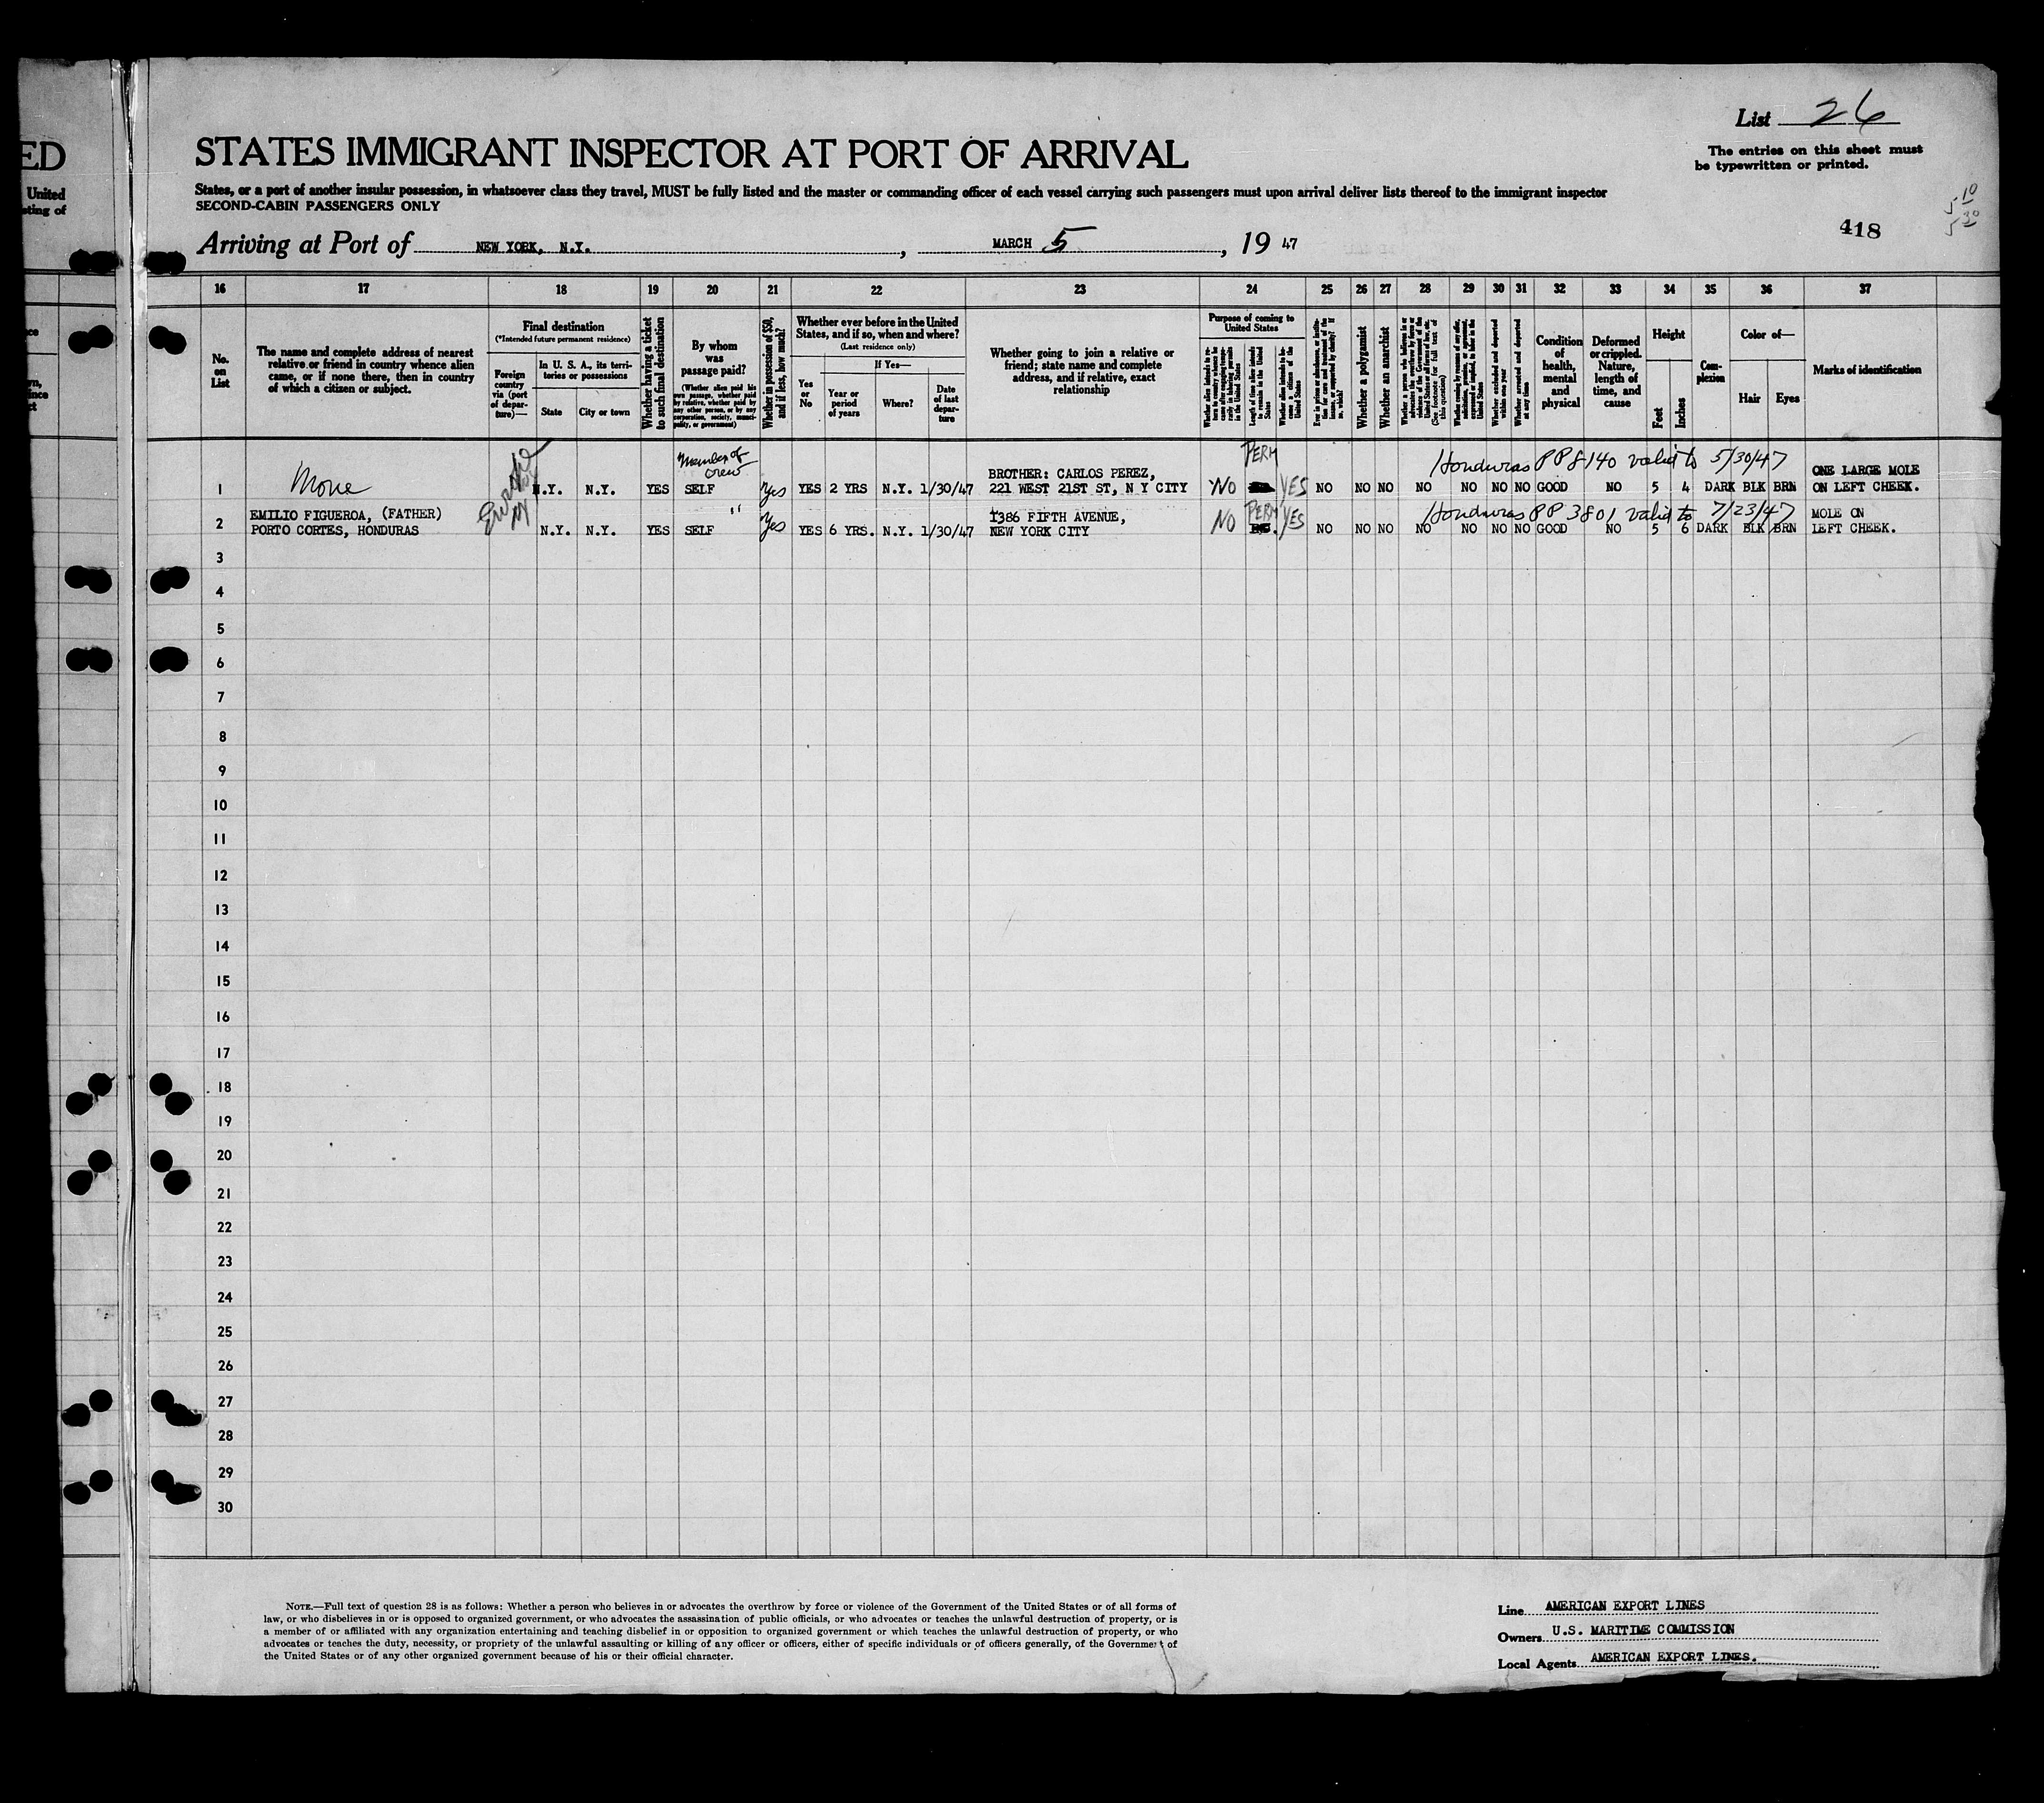 ED
United
sting of
List 26
STATES IMMIGRANT INSPECTOR AT PORT OF ARRIVAL
The entries on this sheet must
be typewritten or printed.
States, or a port of another insular possession, in whatsoever class they travel, MUST be fully listed and the master or commanding officer of each vessel carrying such passengers must upon arrival deliver lists thereof to the immigrant inspector
SECOND-CABIN PASSENGERS ONLY
5-10
5 30
418
Arriving at Port of NEW YORK, N.Y. , MARCH 5 , 19 47
16 17 18 19 20 21 22 23 24 25 26 27 28 29 30 31 32 33 34 35 36 37
No.
on
List
The name and complete address of nearest
relative or friend in country whence alien
came, or if none there, then in country
of which a citizen or subject.
Final destination
(*Intended future permanent residence)
Foreign
country
via (port
of depar-
ture)—
In U. S. A., its terri-
tories or possessions
State City or town
Whether having a ticket
to such final destination
By whom
was
passage paid?
(Whether alien paid his
own passage, whether paid
by relative, whether paid by
any other person, or by any
corporation, society, munici-
pality, or government)
Whether in possession of $50,
and if less, how much?
Whether ever before in the United
States, and if so, when and where?
(Last residence only)
Yes
or
No
If Yes—
Year or
period
of years
Where?
Date
of last
depar-
ture
Whether going to join a relative or
friend; state name and complete
address, and if relative, exact
relationship
Purpose of coming to
United States
Length of time alien intends
to remain in the United
States
Whether alien intends to be-
come a citizen of the
United States
Whether a polygamist
Whether an anarchist
(See footnote for full text of
this question)
Whether excluded and deported
within one year
Whether arrested and deported
at any time
Condition
of
health,
mental
and
physical
Deformed
or crippled.
Nature,
length of
time, and
cause
Height
Feet
Inches
Com-
plexion
Color of—
Hair Eyes
Marks of identification
Member of
crew
PERM
Honduras PP 8140 valid to 5/30/47
BROTHER: CARLOS PEREZ, ONE LARGE MOLE
1 None N.Y. N.Y. YES SELF Yes YES 2 YRS N.Y. 1/30/47 221 WEST 21ST ST, N Y CITY NO YES NO NO NO NO NO NO NO GOOD NO 5 4 DARK BLK BRN ON LEFT CHEEK.
EMILIO FIGUEROA, (FATHER) " 1386 FIFTH AVENUE, PERM Honduras PP 3801 valid to 7/23/47 MOLE ON
2 PORTO CORTES, HONDURAS N.Y. N.Y. YES SELF Yes YES 6 YRS. N.Y. 1/30/47 NEW YORK CITY NO YES NO NO NO NO NO NO NO GOOD NO 5 6 DARK BLK BRN LEFT CHEEK.
3
4
5
6
7
8
9
10
11
12
13
14
15
16
17
18
19
20
21
22
23
24
25
26
27
28
29
30
NOTE.—Full text of question 28 is as follows: Whether a person who believes in or advocates the overthrow by force or violence of the Government of the United States or of all forms of
law, or who disbelieves in or is opposed to organized government, or who advocates the assassination of public officials, or who advocates or teaches the unlawful destruction of property, or is
a member of or affiliated with any organization entertaining and teaching disbelief in or opposition to organized government or which teaches the unlawful destruction of property, or who
advocates or teaches the duty, necessity, or propriety of the unlawful assaulting or killing of any officer or officers, either of specific individuals or of officers generally, of the Government of
the United States or of any other organized government because of his or their official character.
Line AMERICAN EXPORT LINES
Owners U.S. MARITIME COMMISSION
Local Agents AMERICAN EXPORT LINES.